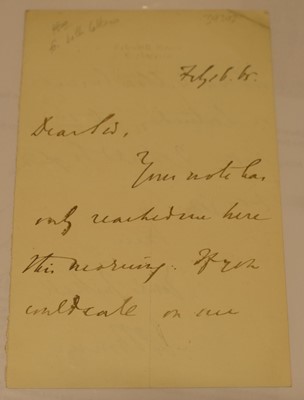 Dear Sir,
Your note has
only reached me here
this morning. If you
could call on me